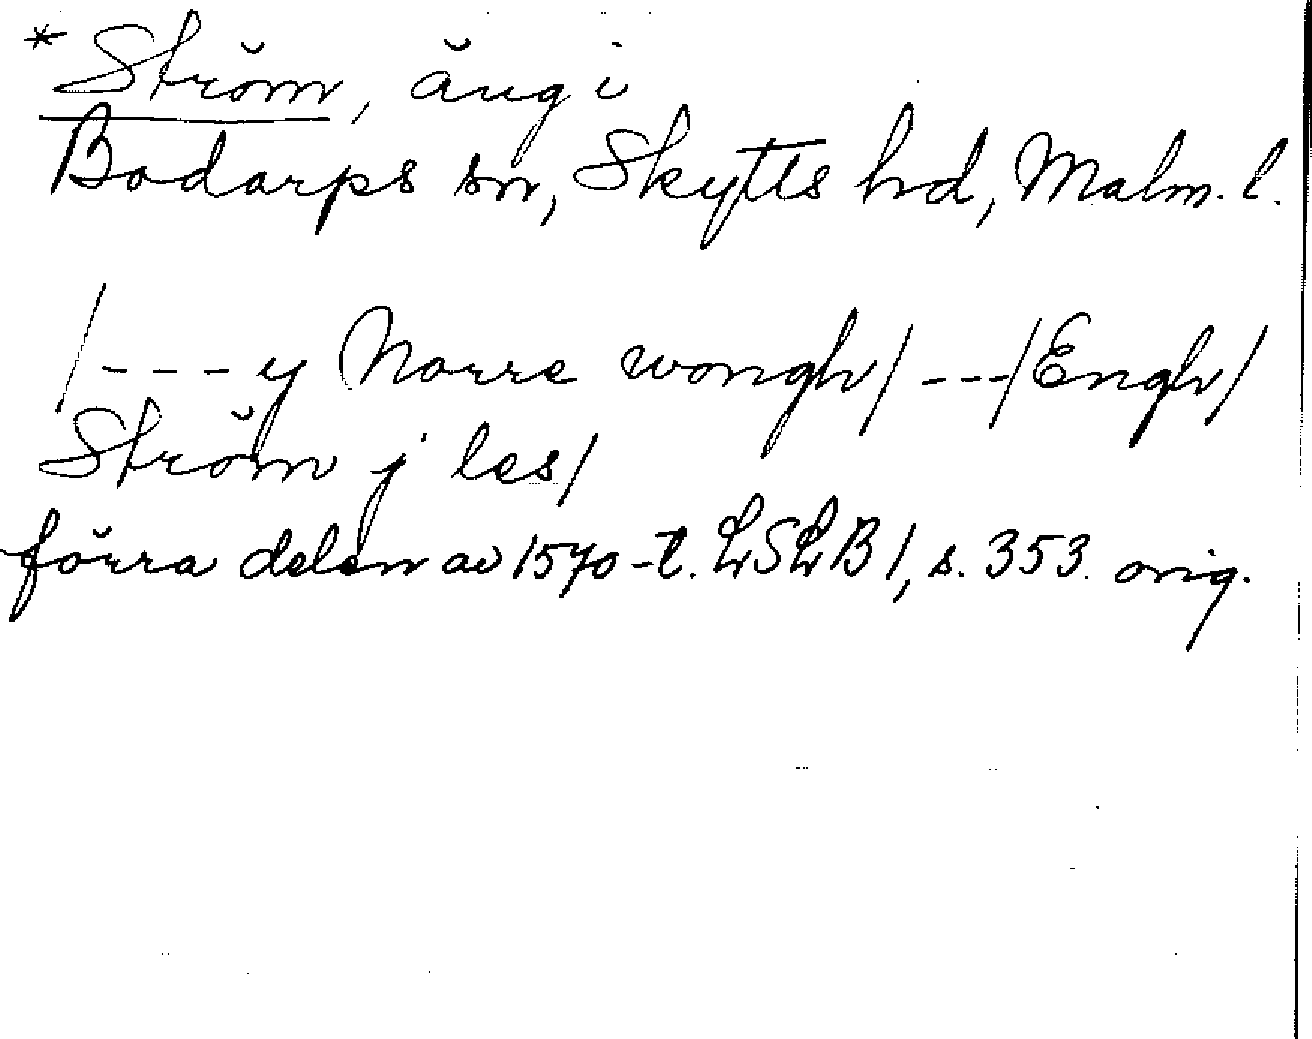 * Ström, äng i
Bodarps sn, Skytts hd, Malm. l.
/---y Norre wongh/ ---/Engh/
Ström j les/
förra delen av 1570-t. LSLB 1, s. 353. orig.